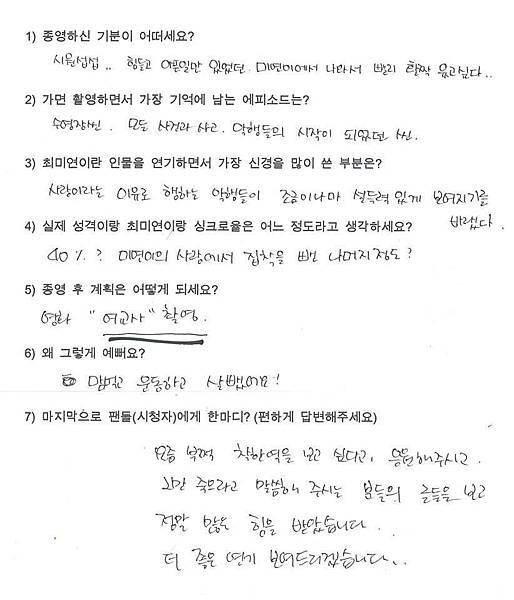 1) 종영하신 기분이 어떠세요?
시원섭섭.. 힘들고 아픈일만 있었던 미연이에서 나와서 빨리 활짝 웃고싶다..
2) 가면 촬영하면서 가장 기억에 남는 에피소드는?
수영장씬. 모든 사건과 사고. 악행들의 시작이 되었던 씬.
3) 최미연이란 인물을 연기하면서 가장 신경을 많이 쓴 부분은?
사랑이라는 이유로 행하는 악행들이 조금이나마 설득력 있게 보여지기를
바랬다.
4) 실제 성격이랑 최미연이랑 싱크로율은 어느 정도라고 생각하세요?
40%? 미연이의 사랑에서 집착을 뺀 나머지정도?
5) 종영 후 계획은 어떻게 되세요?
영화 "여교사" 촬영.
6) 왜 그렇게 예뻐요?
맘먹고 운동하고 살뺐어요!
7) 마지막으로 팬들(시청자)에게 한마디? (편하게 답변해주세요)
요즘 부쩍 착한역을 보고 싶다고, 응원해주시고.
그만 죽으라고 말씀해 주시는 분들의 글들을 보고
정말 많은 힘을 받았습니다.
더 좋은 연기 보여드리겠습니다..